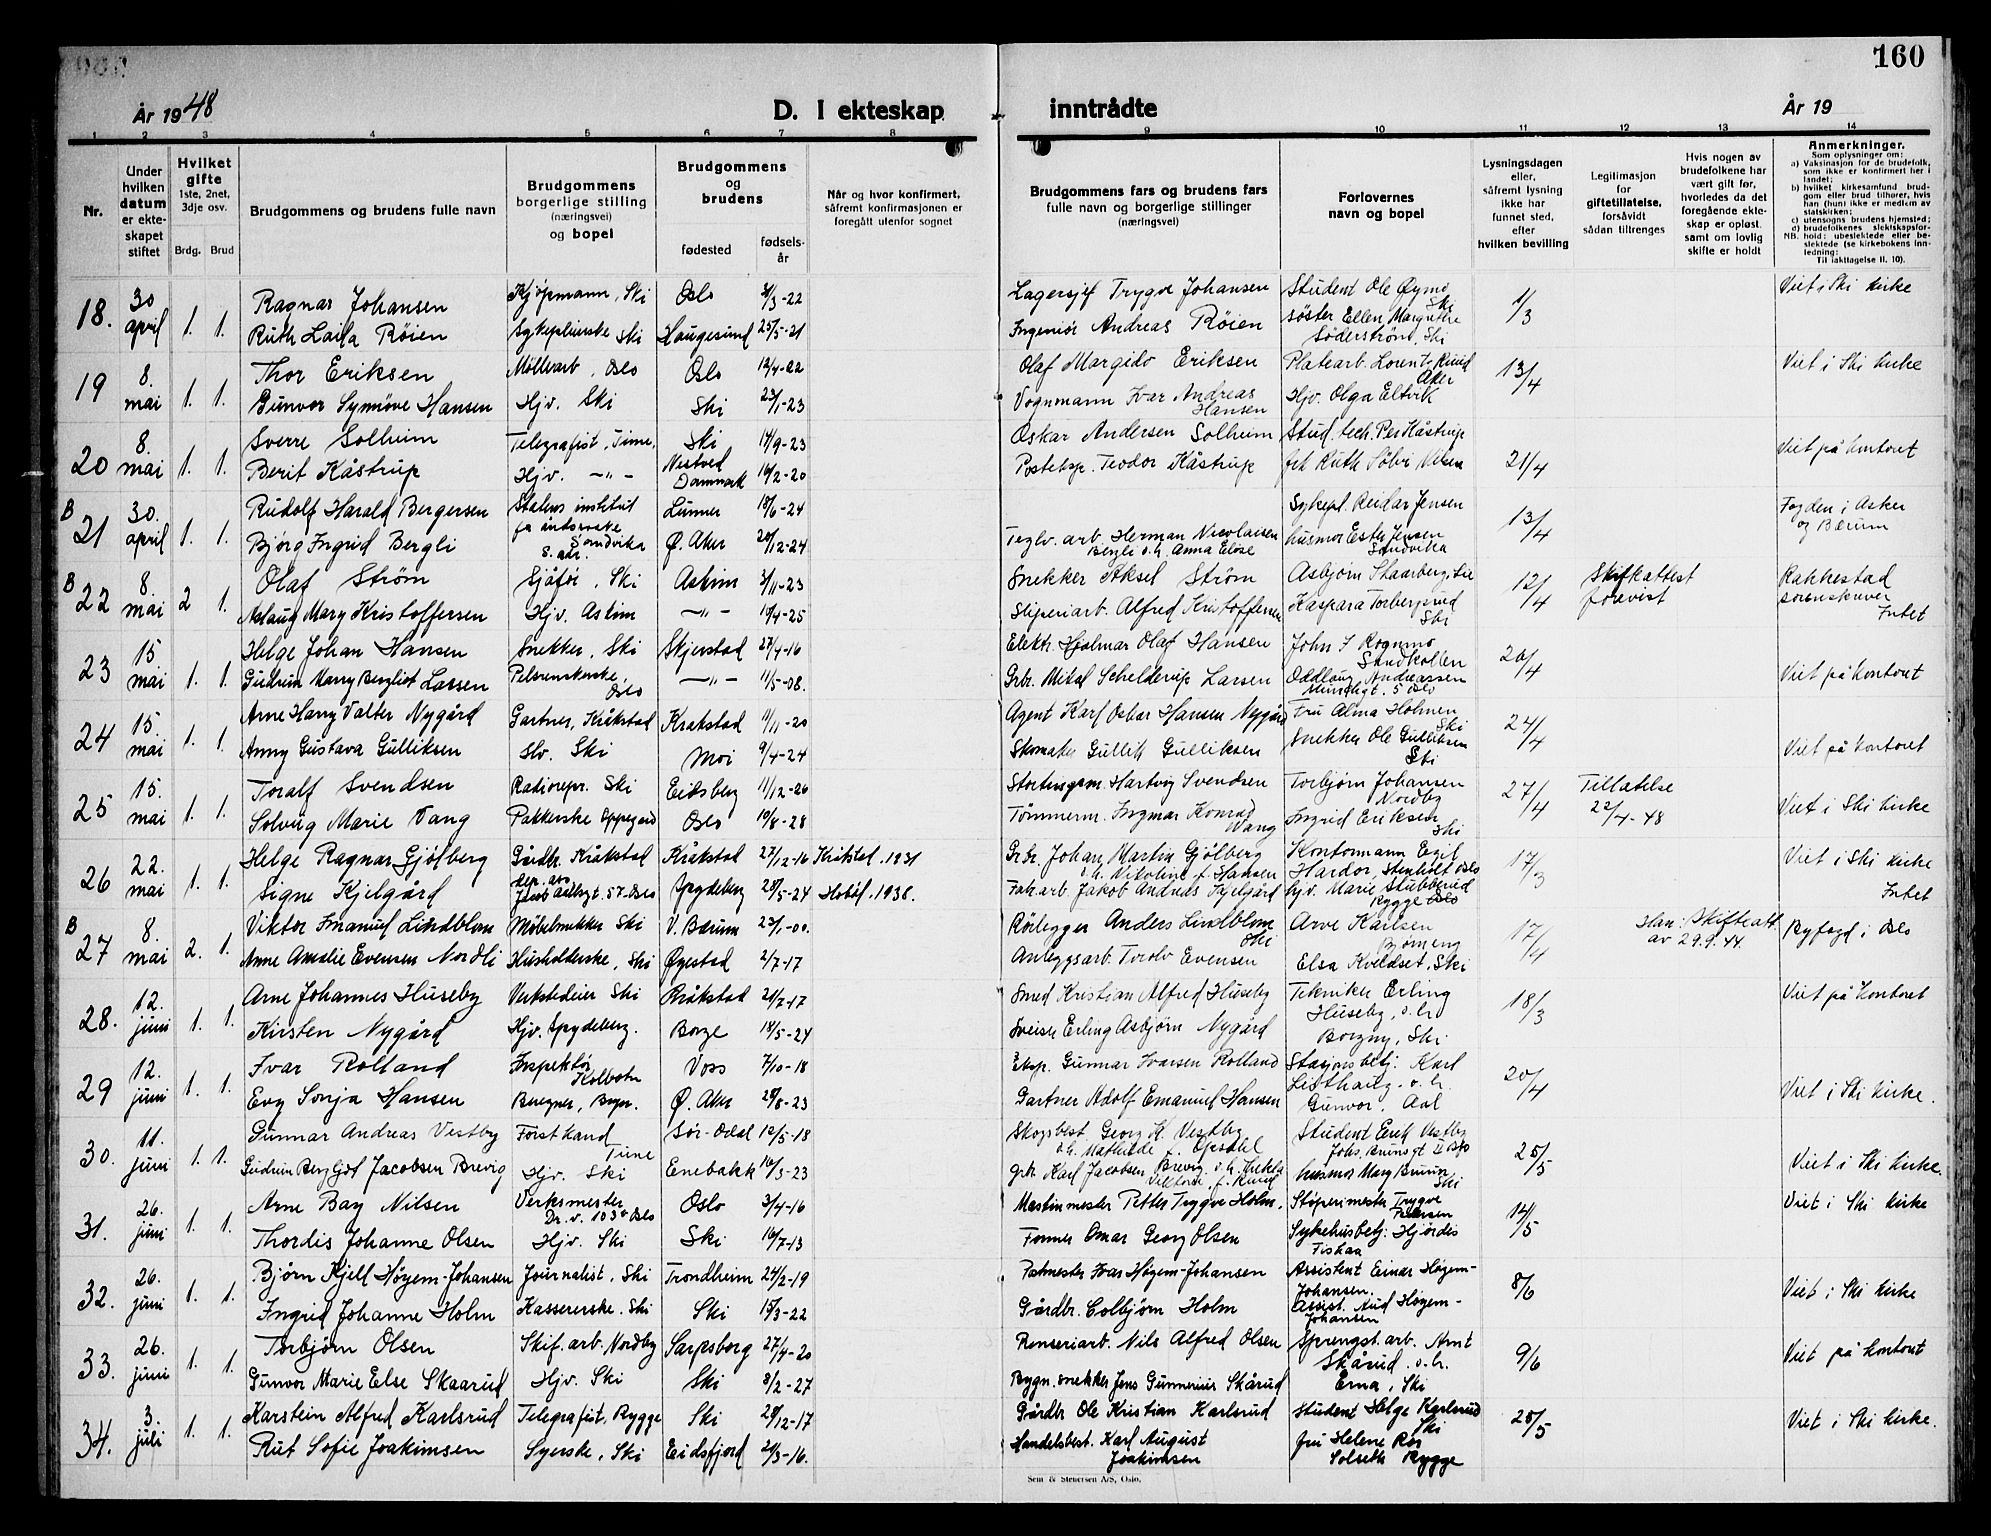 160
År 1948
D. I ekteskap inntrådte
År 19
1 2 3 4 5 6 7 8 9 10 11 12 13 14
Nr.
Under hvilken datum er ekteskapet stiftet
Hvilket gifte 1ste, 2net, 3dje osv.
Brdg. Brud
Brudgommens og brudens fulle navn
Brudgommens borgerlige stilling (næringsvei) og bopel
Brudgommens og brudens
fødested fødselsår
Når og hvor konfirmert, såfremt konfirmasjonen er foregått utenfor sognet
Brudgommens fars og brudens fars fulle navn og borgerlige stillinger (næringsvei)
Forlovernes navn og bopel
Lysningsdagen eller, såfremt lysning ikke har funnet sted, efter hvilken bevilling
Legitimasjon for giftetillatelse, forsåvidt sådan tiltrenges
Hvis nogen av brudefolkene har vært gift før, hvorledes da det foregående ekteskap er opløst. samt om lovlig skifte er holdt
Anmerkninger.
Som oplysninger om:
a) Vaksinasjon for de brudefolk, som ikke er konfirmert her i landet;
b) hvilket kirkesamfund brudgom eller brud tilhører, hvis han (hun) ikke er medlem av statskirken;
c) utensogns brudens hjemsted;
d) brudefolkenes slektskapsforhold: ubeslektede eller beslektede (se kirkebokens innledning:
NB. Til iakttagelse II. 10).
18. 30 april 1. 1. Ragnar Johansen Kjøpmann, Ski Oslo 3/3-22 Lagersjef Trygve Johansen Student Ole Øymo Ski 1/3 Viet i Ski kirke
Ruth Laila Røien Sykepleierske Ski Haugesund 25/5-21 Ingeniør Andreas Røien søster Ellen Margrethe Söderstrøm, Ski
19 8. mai 1. 1. Thor Eriksen Møllearb, Oslo Oslo 12/4-22 Olaf Margido Eriksen Platearb. Lorentz Ruud Aker 13/4 Viet i Ski kirke
Gunvor Synnøve Hansen Hjv. Ski Ski 23/1-23 Vognmann Ivar Andreas Hansen Hjv. Olga Eltvik
20 8. mai 1. 1. Sverre Solheim Telegrafist, Time, Ski 14/9-23 Oskar Andersen Solheim Stud. tech. Per Kåstrup 21/4 Viet på kontoret
Berit Kåstrup Hjv. -"- Nestved Danmark 16/2-20 Posteksp. Teodor Kåstrup frk Ruth Sølvi Nilsen
B 21 30. april 1. 1. Rudolf Harald Bergersen Statens institut for åndssvake Sandvika Lunner 18/6-24 Sykepl. Reidar Jensen 13/4 Fogden i Asker og Bærum
Bjørg Ingrid Bergli S. adr. Ø. Aker 20/12-24 Teglv. arb. Herman Nicolaisen Bergli o.h. Anna Elise husmor Ester Jensen Sandvika
B 22 8. mai 2 1. Olaf Strøm Sjåfør, Ski Askim 3/11-23 Snekker Aksel Strøm Asbjørn Skaarberg, Lie 12/4 Skifteattest forevist Rakkestad sorenskriver
Aslaug Mary Kristoffersen Hjv. Askim -"- 19/4-25 Sliperiarb. Alfred Kristoffersen Kaspara Torbergsrud Ski Intet
23 15. mai 1. 1. Helge Johan Hansen Snekker, Ski Skjerstad 27/4-16 Elektr. Hjalmar Olaf Hansen John I Rognmo Sandkollen 20/4 Viet på kontoret
Gudrun Marry Bergliot Larsen Pelssyerske, Oslo -"- 11/5-08. Grbr. Mikal Schelderup Larsen Oddlaug Andreassen Munchgt. 5 Oslo
24 15. mai 1. 1. Arne Harry Valter Nygård Gartner, Kråkstad Krakstad 11/11-20 Agent Karl Oskar Hansen Nygård Fru Alma Holmen Ski 24/4 Viet på kontoret
Anny Gustava Gulliksen Slv. Ski Moi 9/4-24 Skomaker Gullik Gulliksen Snekker Ole Gulliksen Ski
25 15. mai 1. 1. Toralf Svendsen Radiorepr. Ski Eidsberg 11/12-26 Stortingsm. Hartvig Svendsen Torbjørn Johansen Nordby 27/4 Tillatelse 22/4-48 Viet i Ski kirke
Solveig Marie Vang Pakkerske Oppegård Oslo 10/8-28 Tømmerm. Ingmar Konrad Wang Ingrid Eriksen Ski
26 22. mai 1. 1. Helge Ragnar Gjølberg Gårdbr. Kråkstad Kråkstad 27/12-16 Kråkstad. 1931 Grbr. Johan Martin Gjølberg o.h. Nikoline f. Hansen Kontormann Egil Hardor, Stenholt Oslo 17/3 Viet i Ski kirke
Signe Kjelgård Jacob Aallsgt. 57. Oslo Spydeberg 28/5-24 Hobøl. 1938. Fabr.arb Jakob Andreas Kjelgård hjv. Marie Stubberud Rygge Intet
B 27 8. mai 2. 1. Viktor Emanuel Lindblom Møbelsnekker Ski V. Bærum 23/1-00. Rørlegger Anders Lindblom Ski Arve Karlsen Bjørneng 17/4 Han: Skifteatt. av 29.9.44. Byfogd i Oslo
Anne Amalie Evensen Nordli Husholderske, Ski Øyestad 2/7-17 Anleggsarb. Torolv Evensen Elsa Kveldset, Ski
28. 12. juni 1. 1. Arne Johannes Huseby Verkstedeier Ski Kråkstad 21/7-17 Smed Kristian Alfred Huseby Tekniker Erling Huseby, o.h. 18/3 Viet på kontoret
Kirsten Nygård Hjv. Spydeberg. Borge 18/5-24 Sveiser Erling Asbjørn Nygård Borgny, Ski
29 12. juni 1. 1. Ivar Rolland Inspektør Kolbotn Voss 7/10-18 Eksp. Gunnar Ivarsen Rolland Stasjonsbetj. Karl Listhaug. o.h. 20/4 Viet i Ski kirke.
Evy Sonja Hansen Beregner, Ø. Aker 28/8-23 Gartner Adolf Emanuel Hansen Gunvor, Aal
30. 11. juni 1. 1. Gunnar Andreas Vestby Forstkand Tune Sør-Odal 12/5-18 Skogsbest. Georg K. Vestby o.h. Mathilde f. Opsahl Student Erik Vestby Johs. Brunsgt II Oslo 25/5 Viet i Ski kirke.
Gudrun Bergljot Jacobsen Brevig Hjv. Ski Enebakk 16/3-23 Grbr. Karl Jacobsen Brevig o.h. Hekla Viktoria f. Ruud husmor Mary Brunn Ski
31. 26. juni 1. 1. Arne Bay Nilsen Verksmester Dr. v. 103 Oslo Oslo 3/4-16 Maskinmester Petter Trygve Holm. Støperimester Trygve Pedersen 14/5 Viet i Ski kirke
Thordis Johanne Olsen Hjv. Ski Ski 16/7-13 Former Omar Georg Olsen Sykehusbetj: Hjørdis Fiskaa
32. 26. juni 1. 1. Bjørn Kjell Høyem-Johansen Journalist, Ski Trondheim 24/2-19 Pakmester Ivar Høyem-Johansen Assistent Einar Høyem-Johansen. 8/6 Viet i Ski kirke
Ingrid Johanne Holm Kassererske. Ski Ski 15/3-22 Gårdbr. Colbjørn Holm Assist. Aud Høyem-Johansen
33. 26. juni 1. 1. Torbjørn Olsen Skif. arb. Nordby Sarpsborg 27/4-20 Renseriarb. Nils Alfred Olsen Sprengst. arb. Arnt Skårud. o.h. 9/6 Viet på kontoret
Gunvor Marie Else Skaarud Hjv. Ski Ski 8/2-27 Bygn. snekker Jens Gunnerius Skårud Erna, Ski
34. 3. juli 1. 1. Karstein Alfred Karlsrud Telegrafist, Rygge Ski 28/12-17 Gårdbr Ole Kristian Karlsrud Student Helge Karlsrud Ski 25/5 Viet i Ski kirke.
Rut Sofie Joakimsen Syerske, Ski Eidsfjord 20/3-16. Handelsbest. Karl August Joakimsen fru Helene Ros Solseth Rygge
Sem & Stenersen A/S, Oslo.